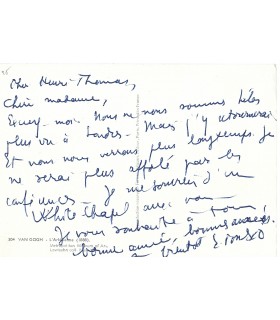 Cher Henri-Thomas,
Chère madame,
Excusez-moi. Nous ne nous sommes
plus vu à Londres. Mais j'y retournerai
Et nous nous verrons plus longtemps. Je
ne serai plus affolé par les
conférences. Je me souviens d'un
White Chapel avec vous
Je vous souhaite à tous,
bonne année, bonnes
à bientôt
VAN GOGH